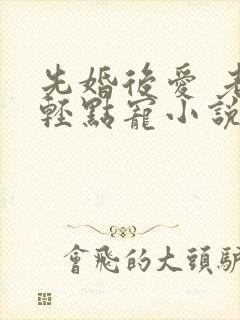 先婚後愛
輕點寵小說
會飛的大頭驢